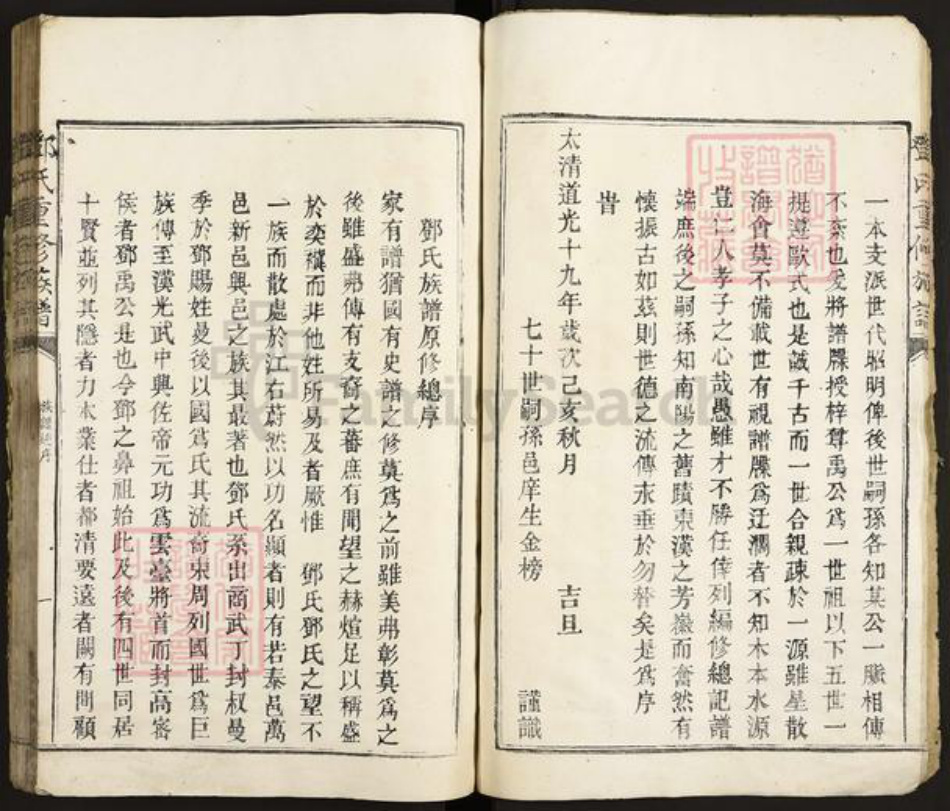 一本支派世代昭明俾後世嗣孫各知某公一脈相傳
不紊也爰將譜牒授梓尊禹公爲一世祖以下五世一
提遵歐式也是誠千古而一世合親疎於一源雖星散
海會莫不備載世有視譜牒爲迂濶者不知木本水源
豈仁人孝子之心哉愚雖才不勝任倖列編修總記譜
端庶後之嗣孫知南陽之舊蹟東漢之芳徽而奮然有
懷振古如茲則世德之流傳永垂於勿替矣是爲序
旹
太清道光十九年歲次己亥秋月 吉旦
七十世嗣孫邑庠生金榜 謹識
鄧氏重修族譜
鄧氏族譜原修總序
家有譜猶國有史譜之修莫爲之前雖美弗彰莫爲之
後雖盛弗傳有支裔之蕃庶有聞望之赫煊足以稱盛
於奕禩而非他姓所易及者厥惟 鄧氏鄧氏之望不
一族而散處於江右蔚然以功名顯者則有若秦邑萬
邑新邑興邑之族其最著也鄧氏系出商武丁封叔曼
季於鄧賜姓曼後以國爲氏其流裔東周列國世爲巨
族傳至漢光武中興佐帝元功爲雲臺將首而封高密
侯者鄧禹公是也今鄧之鼻祖始此及後有四世同居
十賢並列其隱者力本業仕者都清要遠者闕有間顧
鄧氏重修族譜
族譜總序
一
FamilySearch